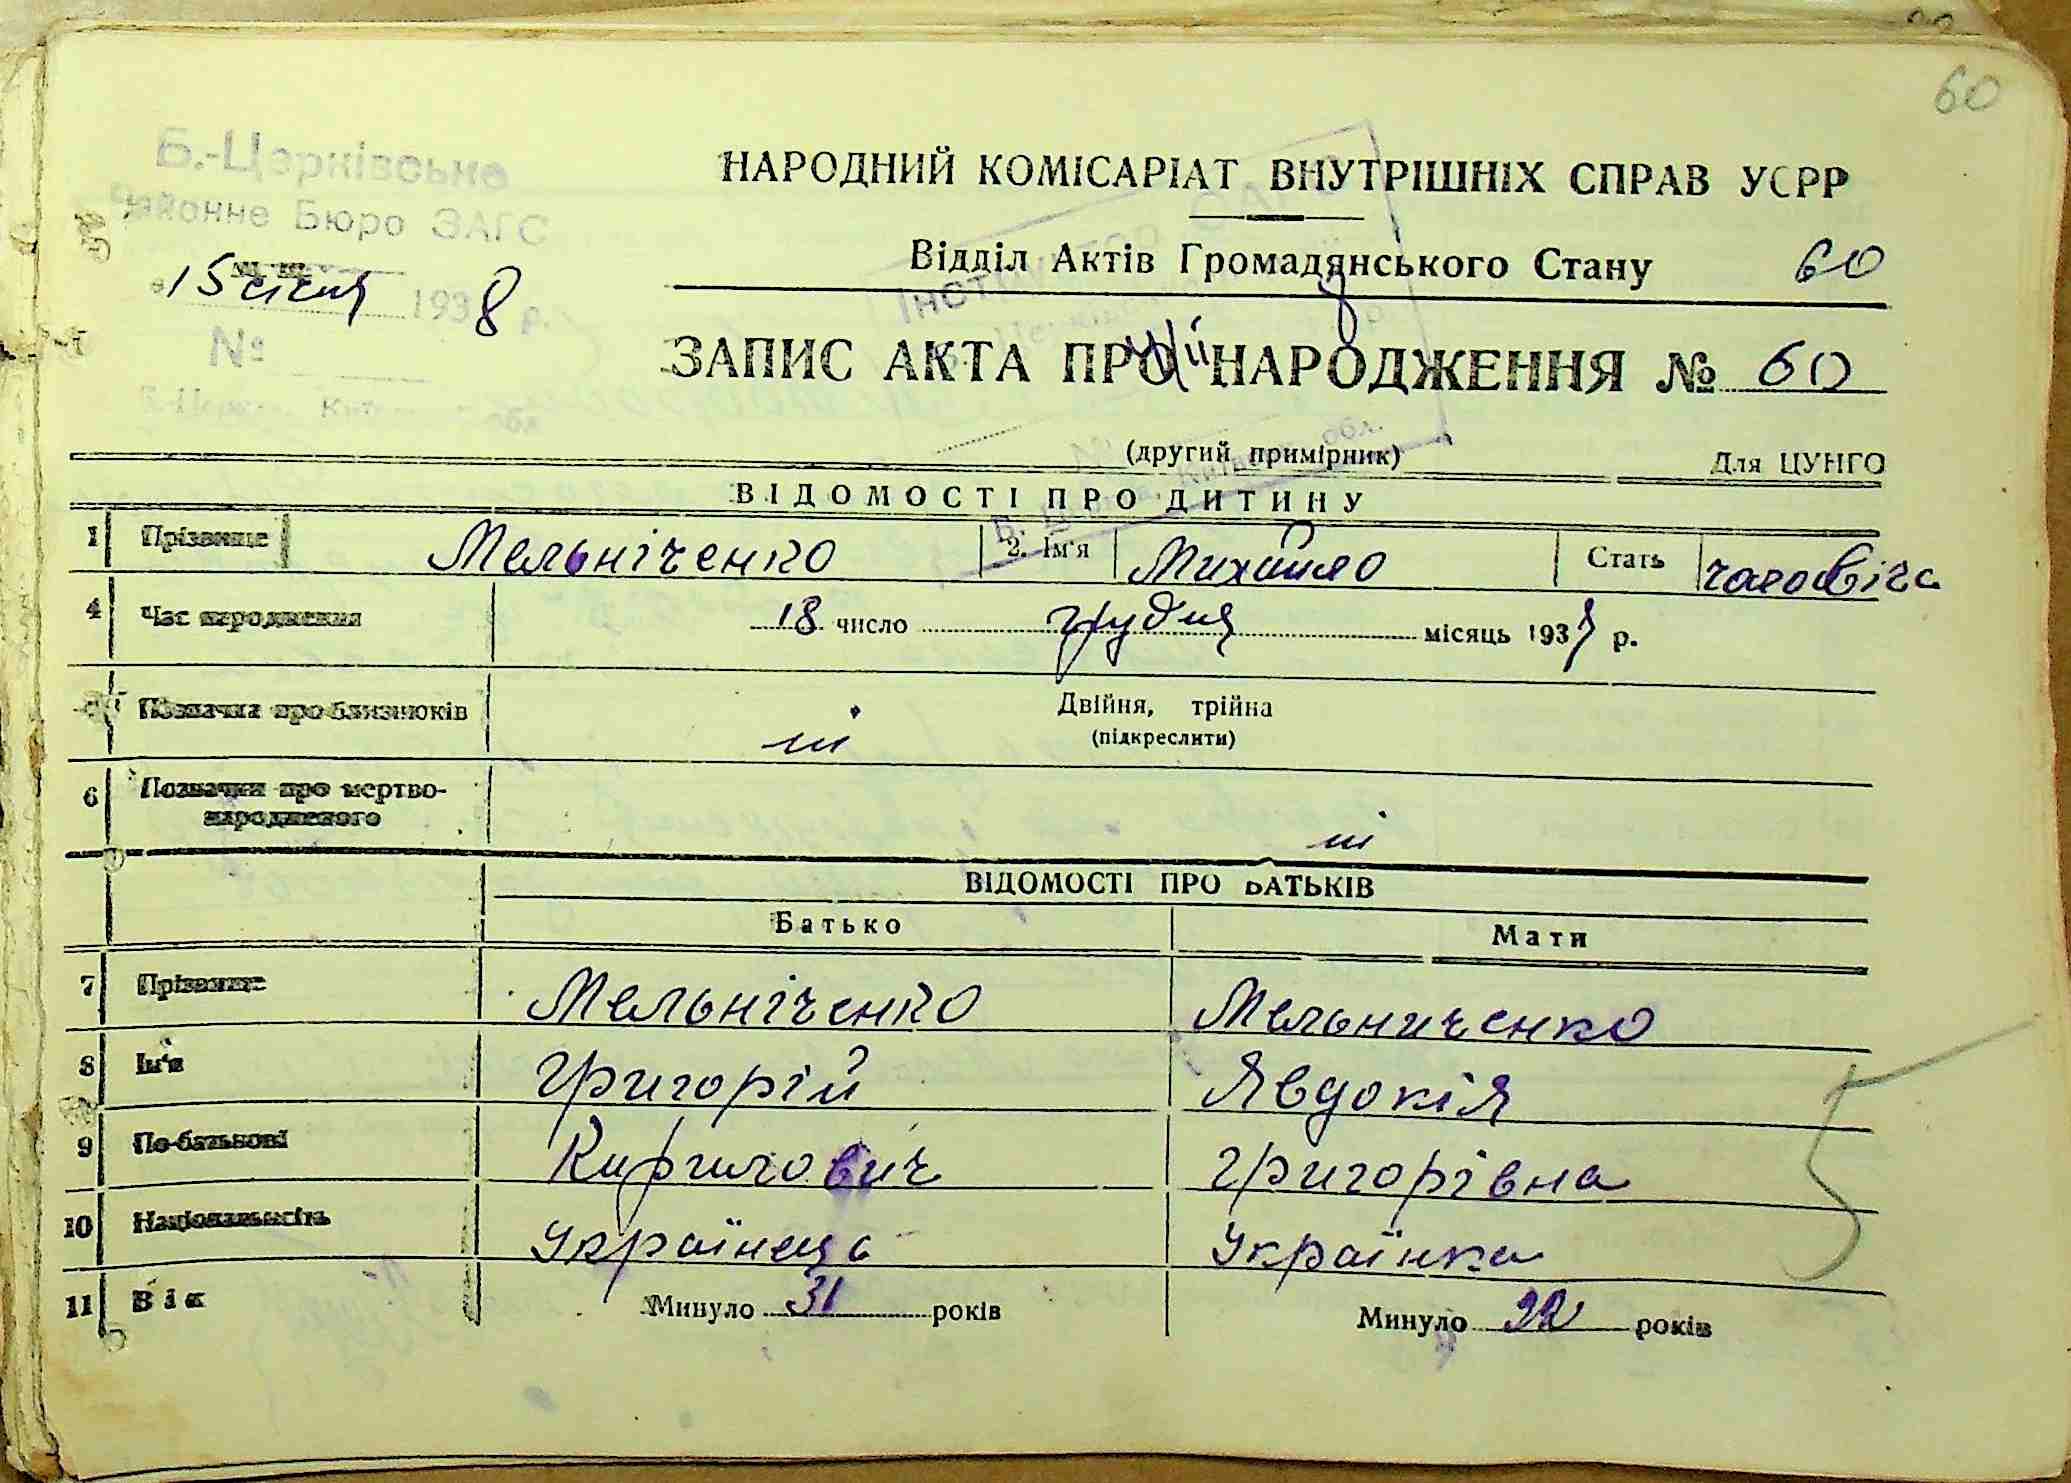 60
Б.-Церківське
Районне Бюро ЗАГС
15 січня 1938 р.
№
НАРОДНИЙ КОМІСАРІАТ ВНУТРІШНІХ СПРАВ УСРР
Відділ Актів Громадянського Стану 60
ЗАПИС АКТА ПРО НАРОДЖЕННЯ № 60
(другий примірник) Для ЦУНГО
ВІДОМОСТІ ПРО ДИТИНУ
1 Прізвище Мельніченко 2. Ім'я Михайло Стать чоловіча
4 Час народження 18 число грудня місяць 1937 р.
5 Позначка про близнюків ні Двійня, трійна
(підкреслити)
6 Позначки про мертво-
народженого ні
ВІДОМОСТІ ПРО БАТЬКІВ
Батько Мати
7 Прізвище Мельніченко Мельниченко
8 Ім'я Григорій Явдокія
9 По-батькові Кирилович Григорівна
10 Національність Українець Українка
11 Вік Минуло 31 років Минуло 22 років